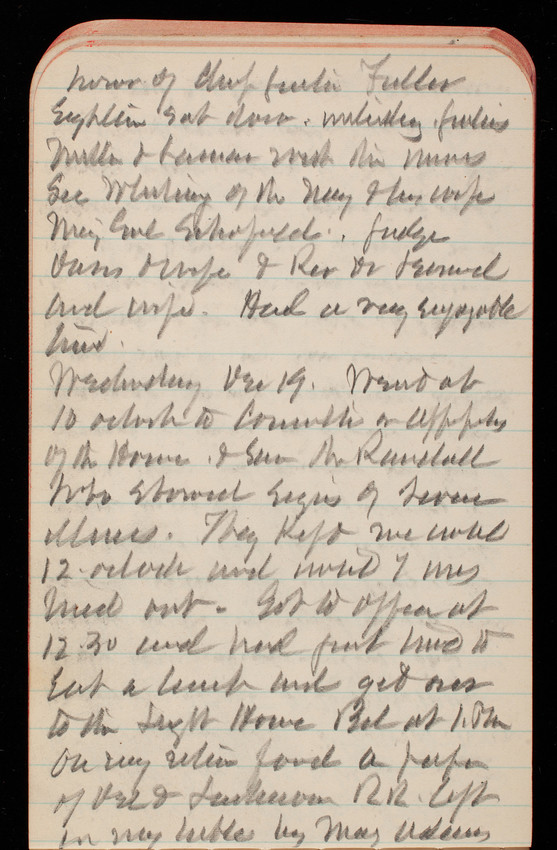 honor of Chief Justice Fuller
Eighteen sat down. including Justices
Miller & Lamar with their wives
Sec Whitney of the Navy & his wife
Maj Genl Schofield, Judge
Davis & wife & Rev Dr
and wife. Had a very enjoyable
time.
Wednesday Dec 19. Went at
10 oclock to Committee on App
of the House & saw Mr Randall
who showed signs of severe
illness. They kept me until
12 oclock and until I was
tired out. Got to office at
12.30 and had just time to
Eat a lunch and get over
to the Light House Bd at 1.
On my return found a paper
of Del & Lackawan R.R. left
on my table by Maj Adams